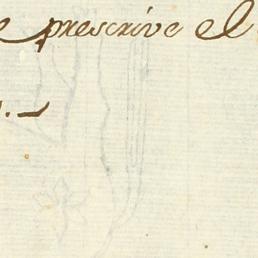 e prescrive el